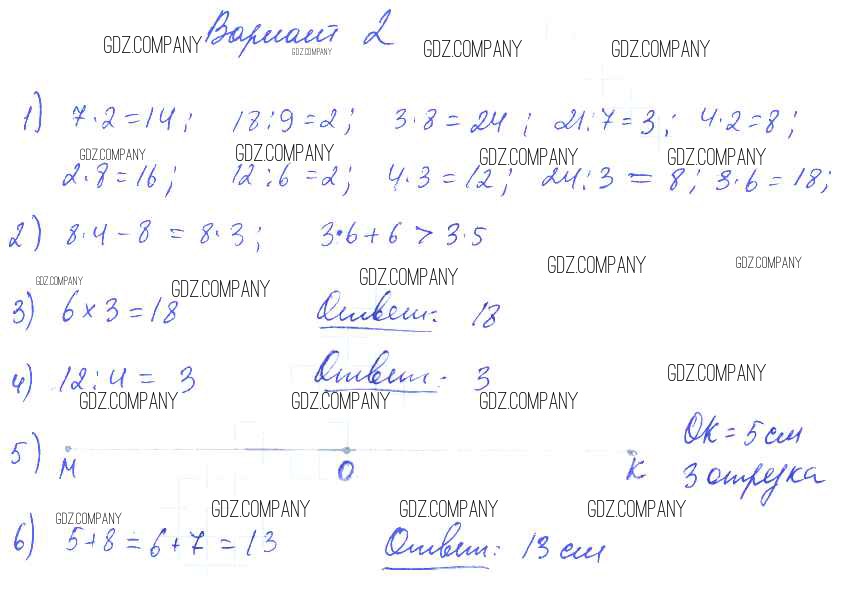 Вариант 2
GDZ.COMPANY GDZ.COMPANY GDZ.COMPANY GDZ.COMPANY
1) 7·2=14; 18:9=2; 3·8=24; 21:7=3; 4·2=8;
GDZ.COMPANY GDZ.COMPANY GDZ.COMPANY GDZ.COMPANY
2·8=16; 12:6=2; 4·3=12; 24:3=8; 3·6=18;
2) 8·4-8=8·3; 3·6+6>3·5
GDZ.COMPANY GDZ.COMPANY GDZ.COMPANY GDZ.COMPANY GDZ.COMPANY
3) 6×3=18 Ответ: 18
4) 12:4=3 Ответ: 3
GDZ.COMPANY GDZ.COMPANY GDZ.COMPANY GDZ.COMPANY
5) М О К ОК=5 см
3 отрезка
GDZ.COMPANY GDZ.COMPANY GDZ.COMPANY GDZ.COMPANY
6) 5+8=6+7=13 Ответ: 13 см